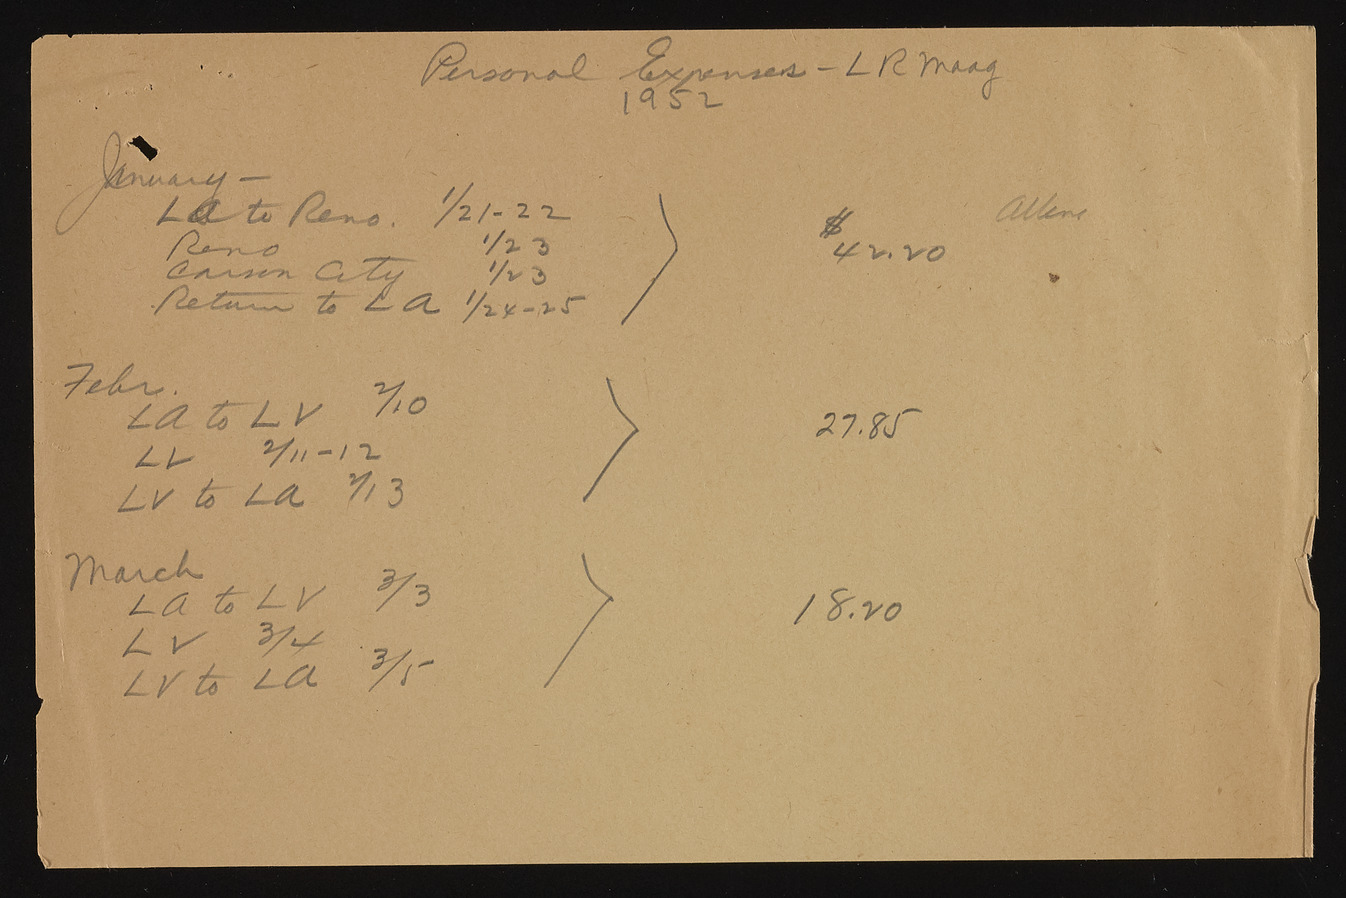 Personal Expenses - L R Maag
1952
January -
LA to Reno. 1/21-22
Reno 1/23
Carson City 1/23
Return to LA 1/24-25
$
42.20
Febr.
LA to LV 2/10
LV 2/11-12
LV to LA 2/13
27.85
March
LA to LV 3/3
LV 3/4
LV to LA 3/5
18.20